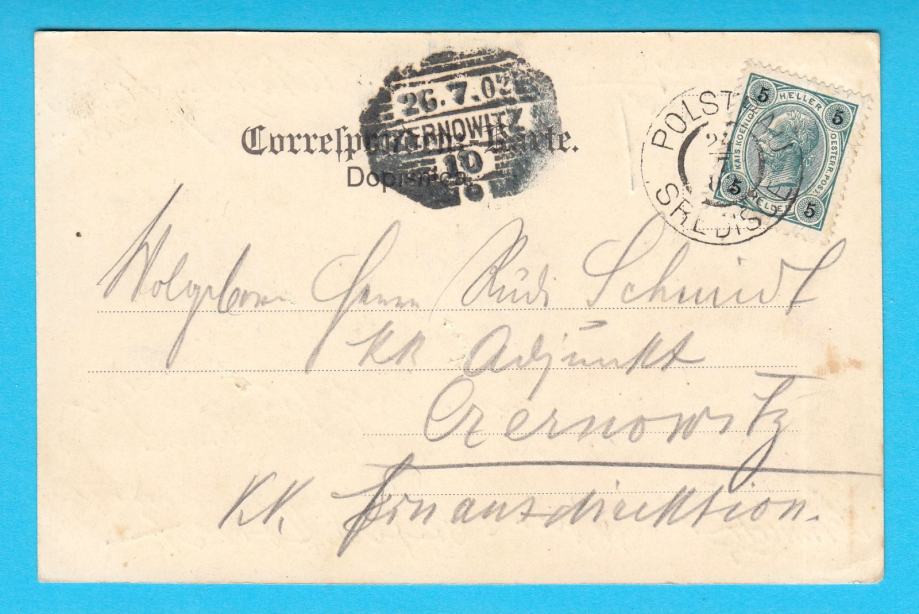 26.7.02
CZERNOWITZ
10
Correspondenz-Karte.
Dopisnica.
POLSTRAU
SREDIŠ
5 HELLER 5
KAIS. KOENIGL. OESTERR. POST
5 HELLER 5
Wolgeborn Herrn Rudi Schmidt
KK Adjunkt
Czernowitz
KK. Finanzdirektion.